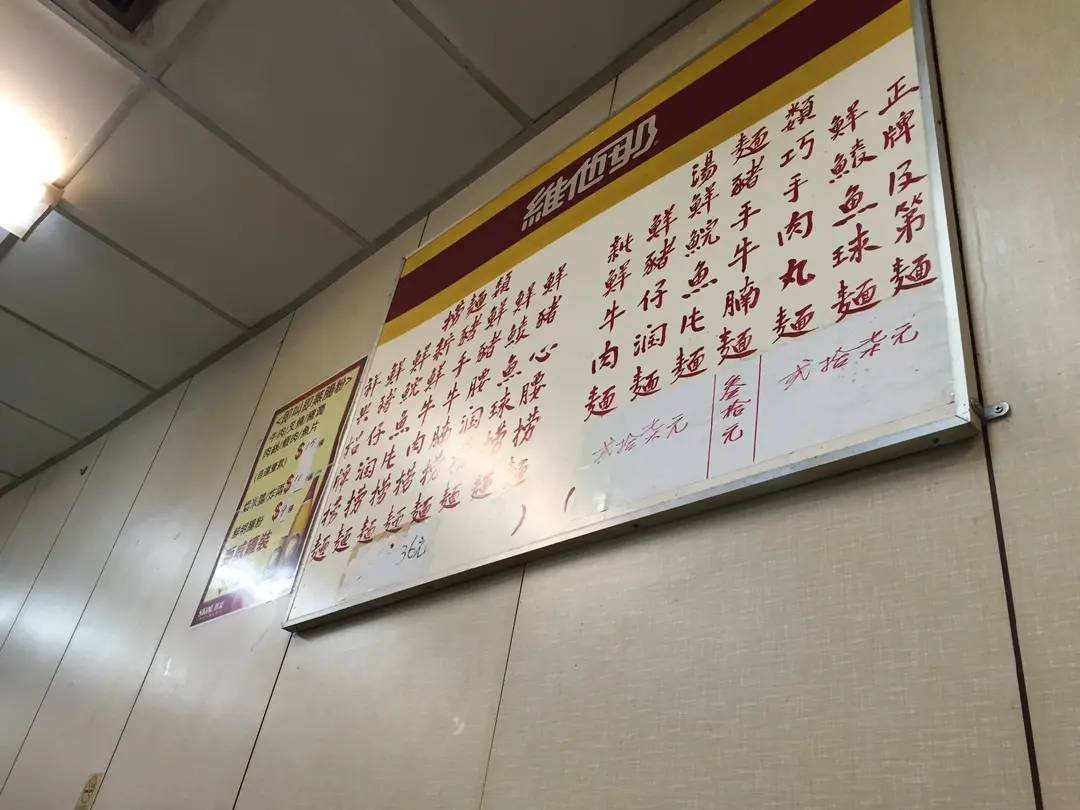 維他奶
湯麵類
正牌及第麵
鮮鯪魚球麵
巧手肉丸麵
豬手牛腩麵
鮮鯇魚片麵
鮮豬仔潤麵
鮮牛肉麵
貳拾柒元
叁拾元
貳拾柒元
撈麵類
鮮豬心腰撈麵
鮮鯪魚球撈麵
鮮豬腰潤撈麵
豬手牛腩撈麵
鮮牛肉撈麵
鮮鯇魚片撈麵
鮮豬仔潤撈麵
撈麵
36元
牛肉/叉燒/豬潤
肉絲/蝦肉/魚片
$15
$11
$9